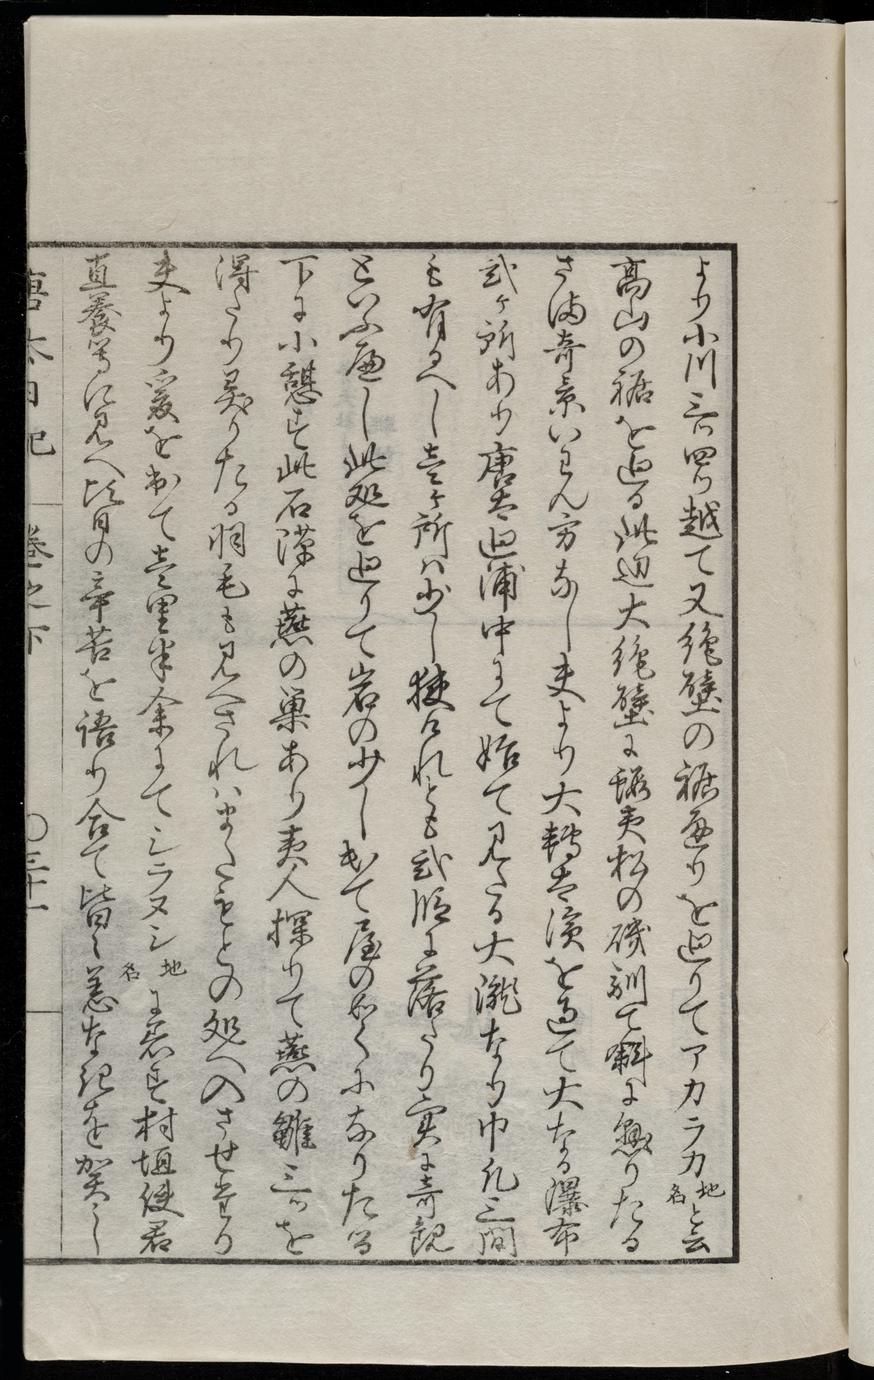 より小川三ツ四ツ越て又絶壁の裾通りを廻りてアカラカ地名と云
高山の裾を廻る此辺大絶壁に蝦夷松の磯馴て斜に魁りたる
さま奇景いはん方なし夫より大轉太濱を過て大なる瀑布
弐ヶ所あり唐太廻浦中にて始て見たる大瀧なり巾凡三間
も有るへし壱ヶ所ハ少し狭けれとも弐段に落たり実に奇観
といふ可し此処を廻りて岩の少し出て屋の如くになりたる
下に小憩す此石隙に燕の巣あり夷人探りて燕の雛三ツを
得たり異りたる羽毛も見へされハまたもとの処へ入させたり
夫より爰を出て壱里半余にてシラヌシ地名に着す村垣使君
直養等に見へ皆日の辛苦を語り合て皆々恙なきを賀し
唐太日記 巻之下 〇三十一